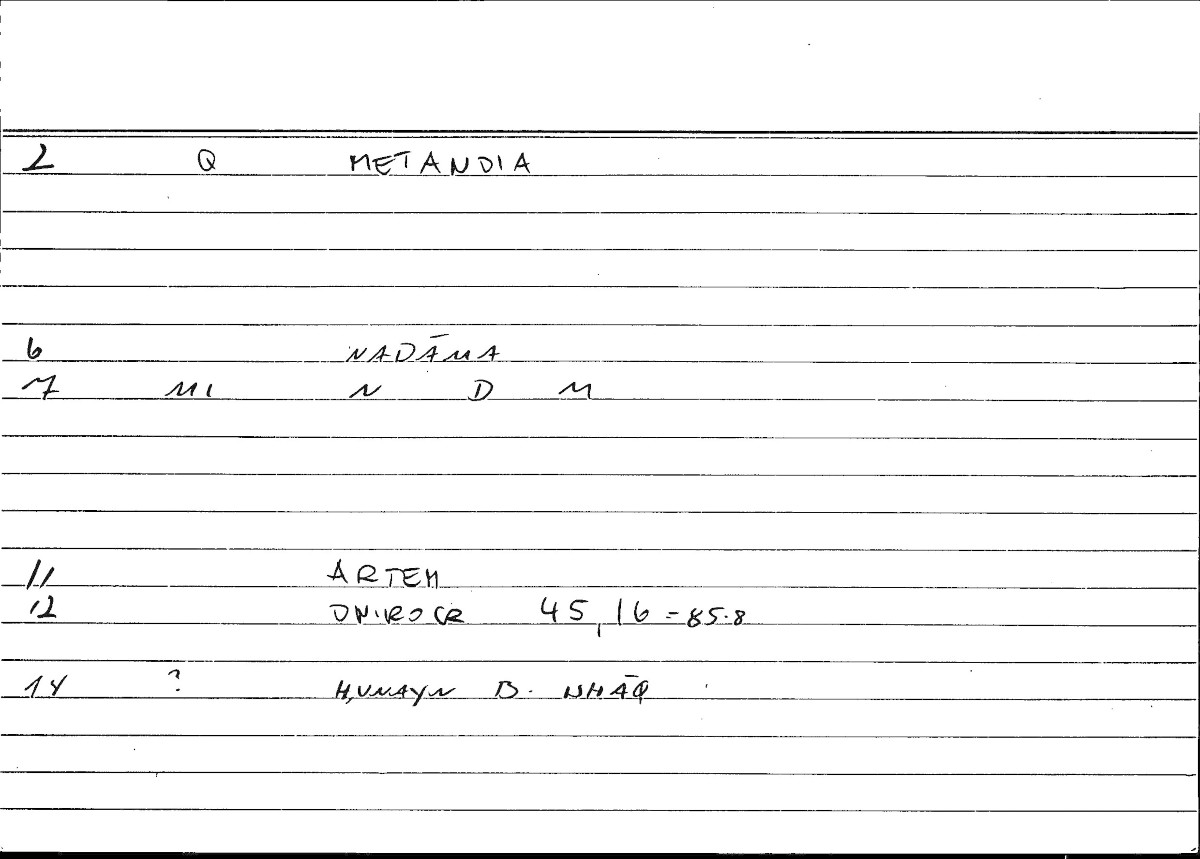 2 Q METANOIA
6 NADĀMA
7 MI N D M
11 ARTEM
12 ONIROCR 45,16 = 85.8
14 ? ḤUNAYN B. ISḤĀQ